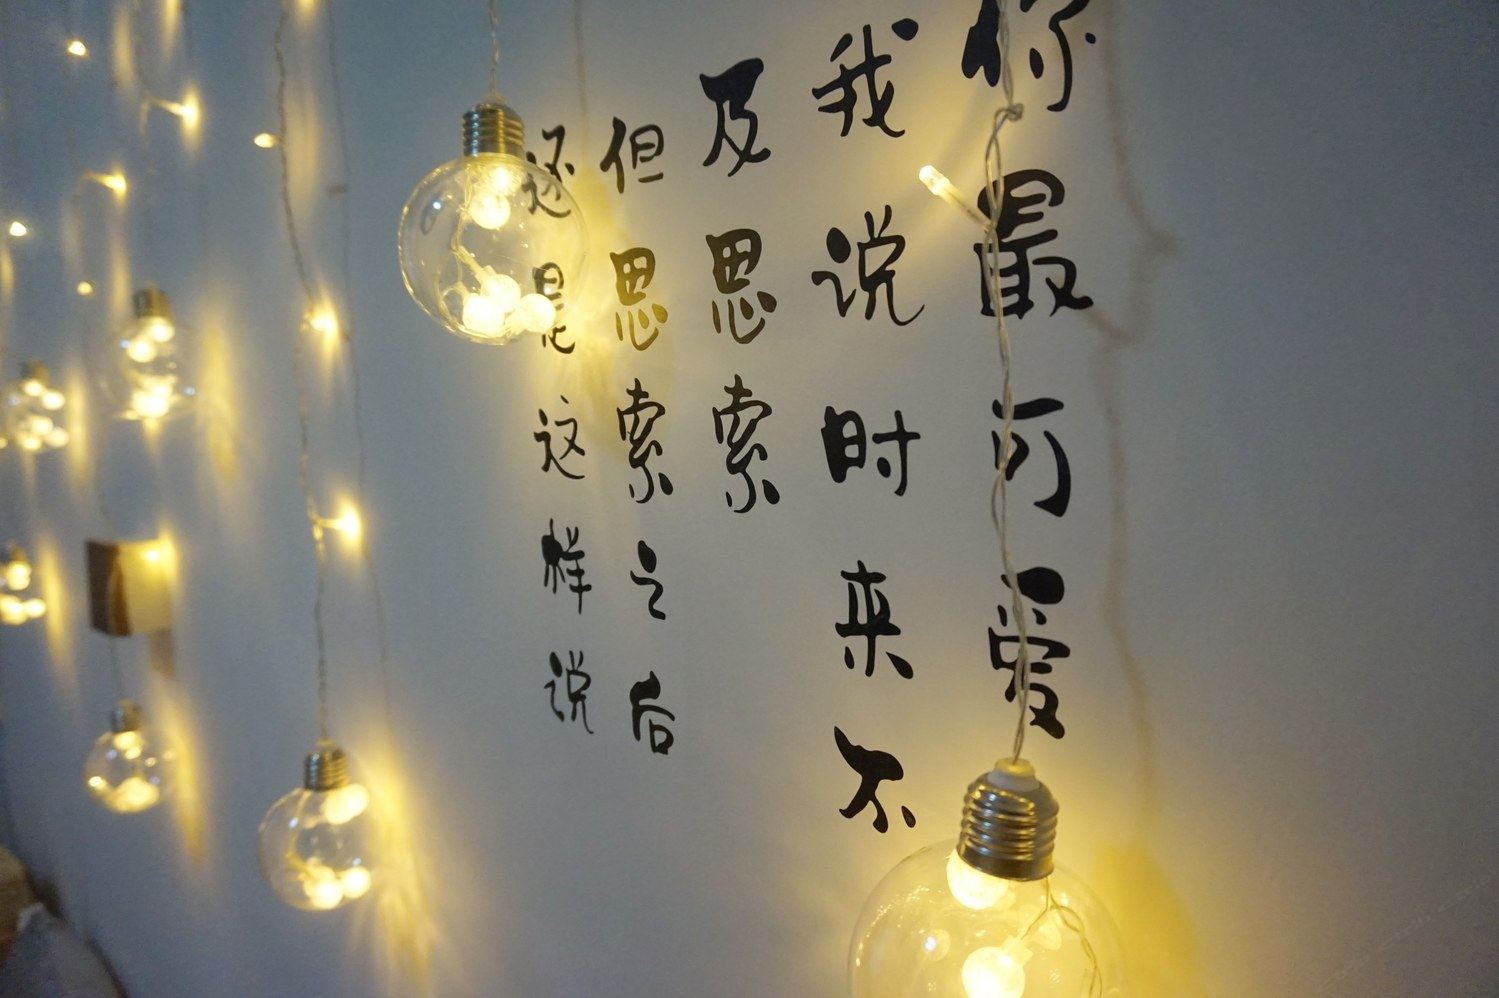 你最可爱
我说时来不
及思索
但思索之后
还是这样说